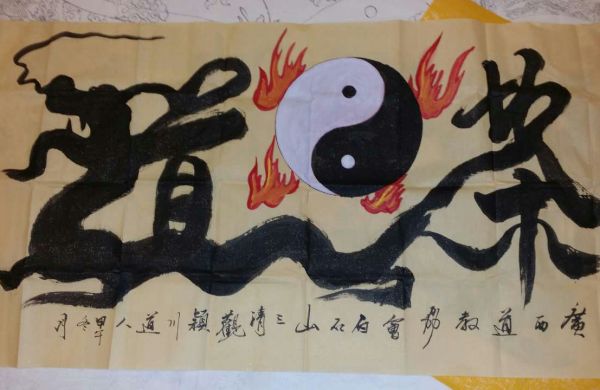 道
廣西道教協會白石山三清觀穎川道人甲午冬月